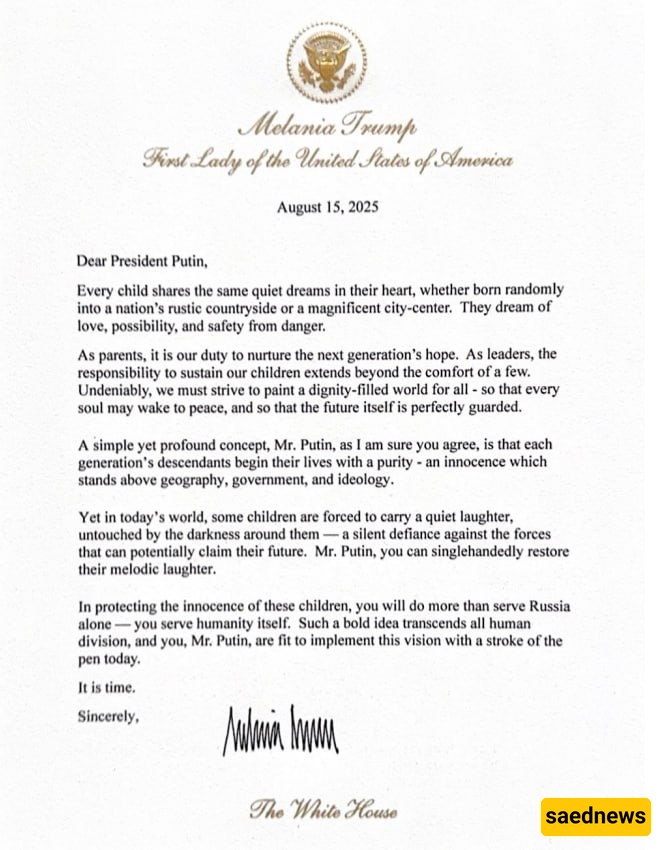 Melania Trump
First Lady of the United States of America
August 15, 2025
Dear President Putin,
Every child shares the same quiet dreams in their heart, whether born randomly
into a nation's rustic countryside or a magnificent city-center.  They dream of
love, possibility, and safety from danger.
As parents, it is our duty to nurture the next generation's hope.  As leaders, the
responsibility to sustain our children extends beyond the comfort of a few.
Undeniably, we must strive to paint a dignity-filled world for all - so that every
soul may wake to peace, and so that the future itself is perfectly guarded.
A simple yet profound concept, Mr. Putin, as I am sure you agree, is that each
generation's descendants begin their lives with a purity - an innocence which
stands above geography, government, and ideology.
Yet in today's world, some children are forced to carry a quiet laughter,
untouched by the darkness around them — a silent defiance against the forces
that can potentially claim their future.  Mr. Putin, you can singlehandedly restore
their melodic laughter.
In protecting the innocence of these children, you will do more than serve Russia
alone — you serve humanity itself.  Such a bold idea transcends all human
division, and you, Mr. Putin, are fit to implement this vision with a stroke of the
pen today.
It is time.
Sincerely,
The White House
saednews